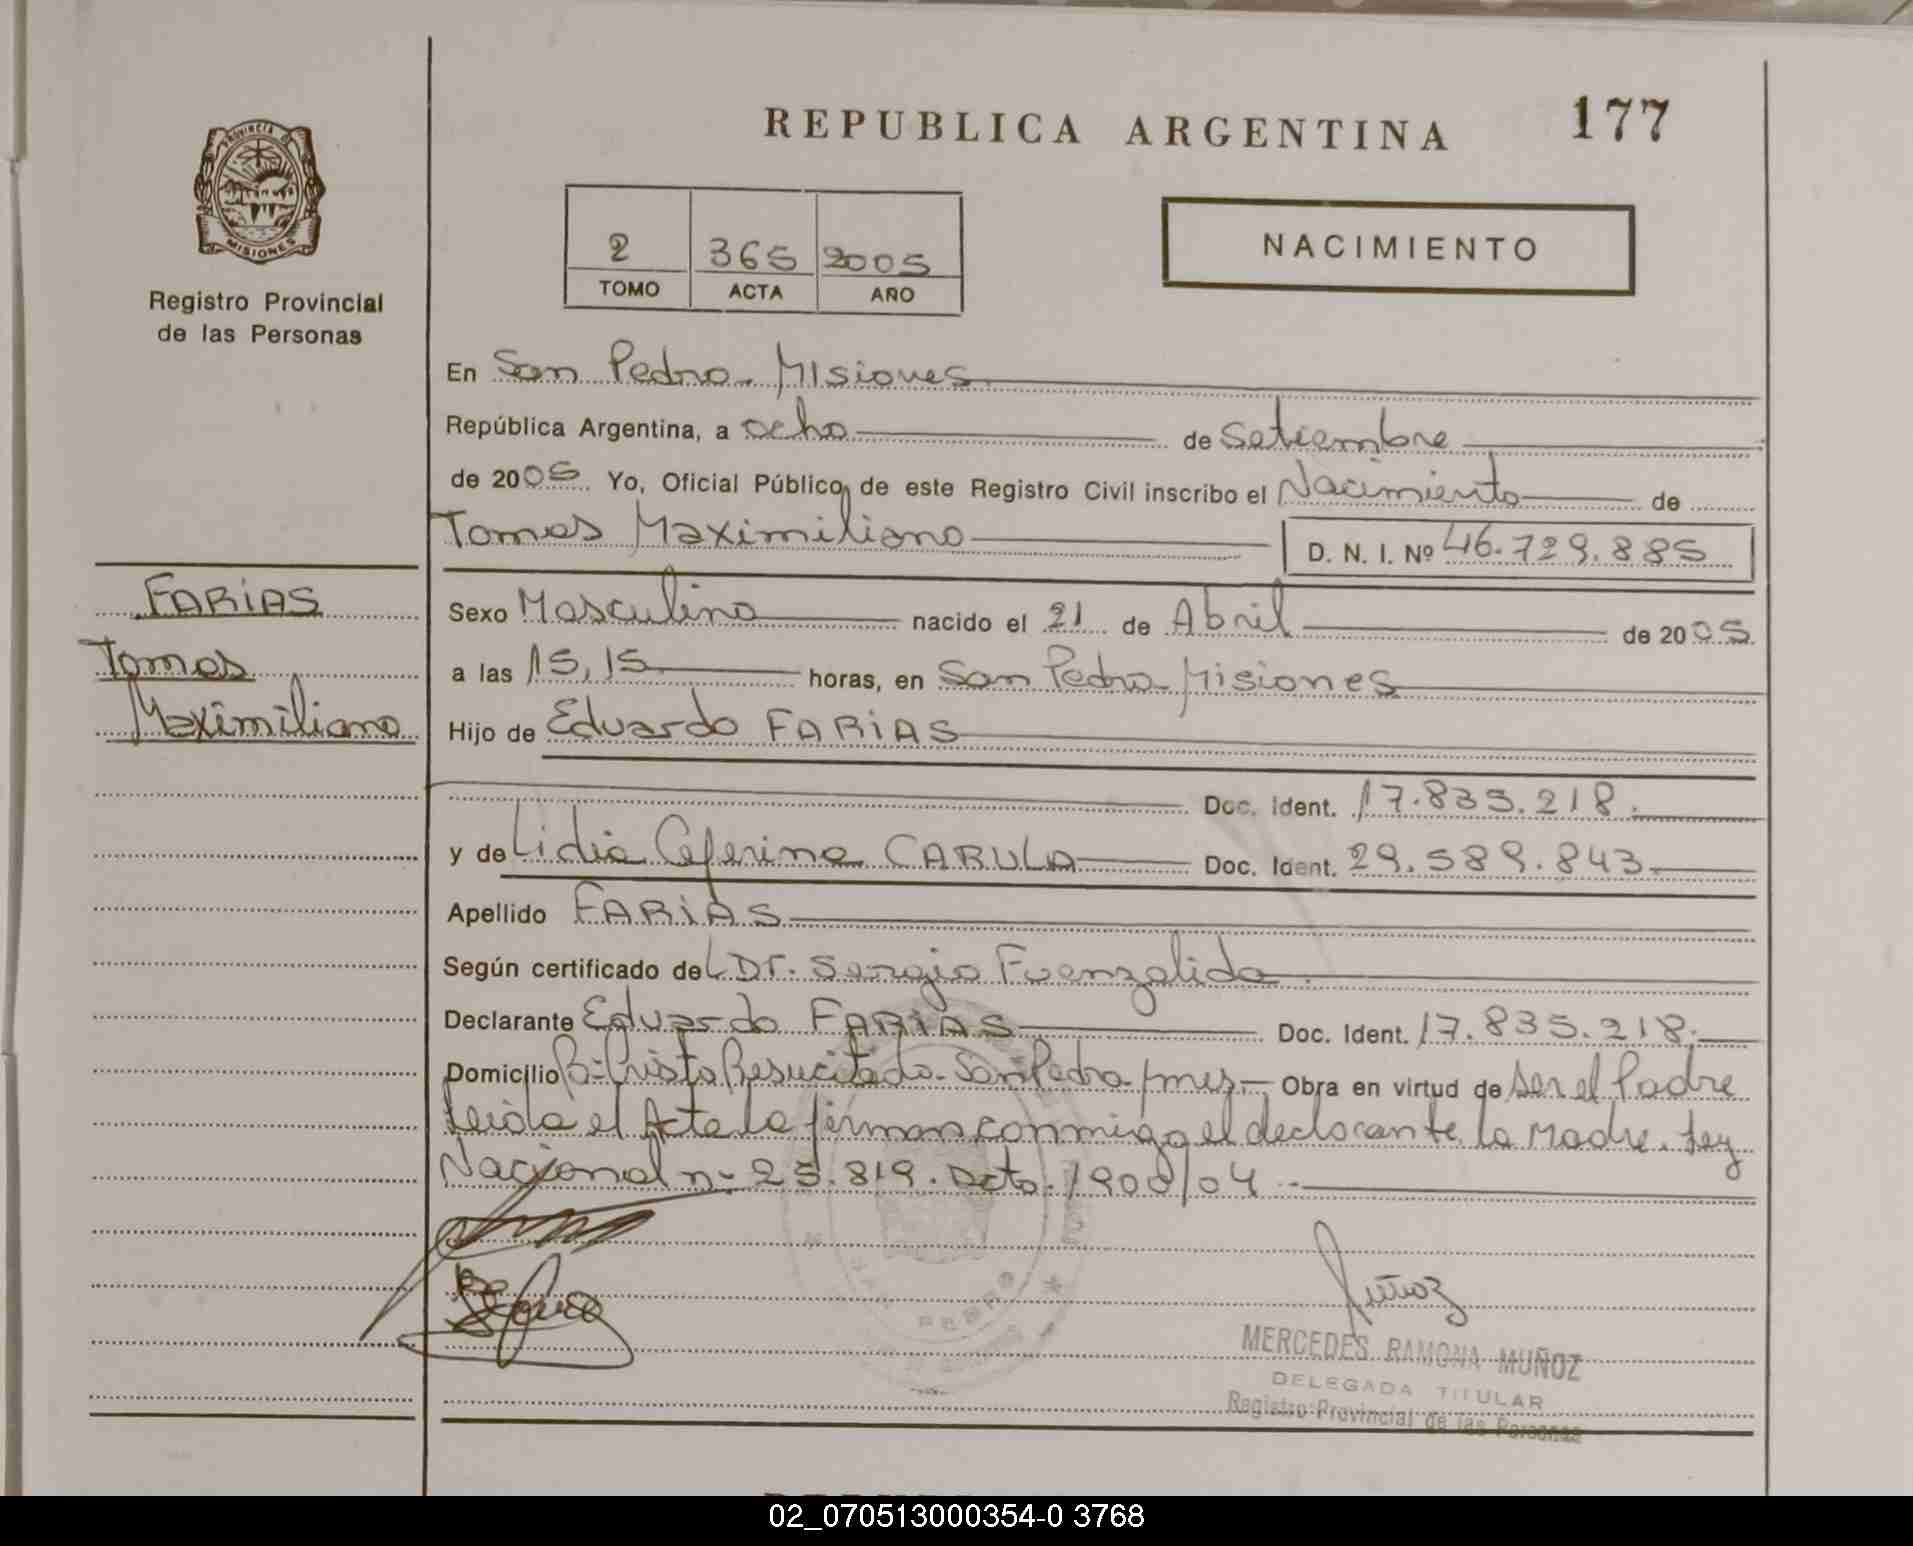 REPUBLICA ARGENTINA 177
PROVINCIA DE
MISIONES
Registro Provincial
de las Personas
2 365 2005
TOMO ACTA AÑO
NACIMIENTO
En San Pedro - Misiones
República Argentina, a ocho de Setiembre
de 2005 Yo, Oficial Público de este Registro Civil inscribo el Nacimiento de
Tomas Maximiliano D. N. I. Nº 46.729.885
FARIAS
Tomas
Maximiliano
Sexo Masculino nacido el 21 de Abril de 2005
a las 15,15 horas, en San Pedro - Misiones
Hijo de Eduardo FARIAS
Doc. Ident. 17.835.218.
y de Lidia Ceferina CARULA Doc. Ident. 29.589.843
Apellido FARIAS
Según certificado del Dr. Sergio Fuenzalida
Declarante Eduardo FARIAS Doc. Ident. 17.835.218.
Domicilio Bº Cristo Resucitado - San Pedro - mnes - Obra en virtud de ser el Padre
leida el Acta la firman conmigo el declarante la Madre. Ley
Nacional nº 25.819. Dcto. 1900/04 --
Muñoz
MERCEDES RAMONA MUÑOZ
DELEGADA TITULAR
Registro Provincial de las Personas
SAN PEDRO
02_070513000354-0 3768